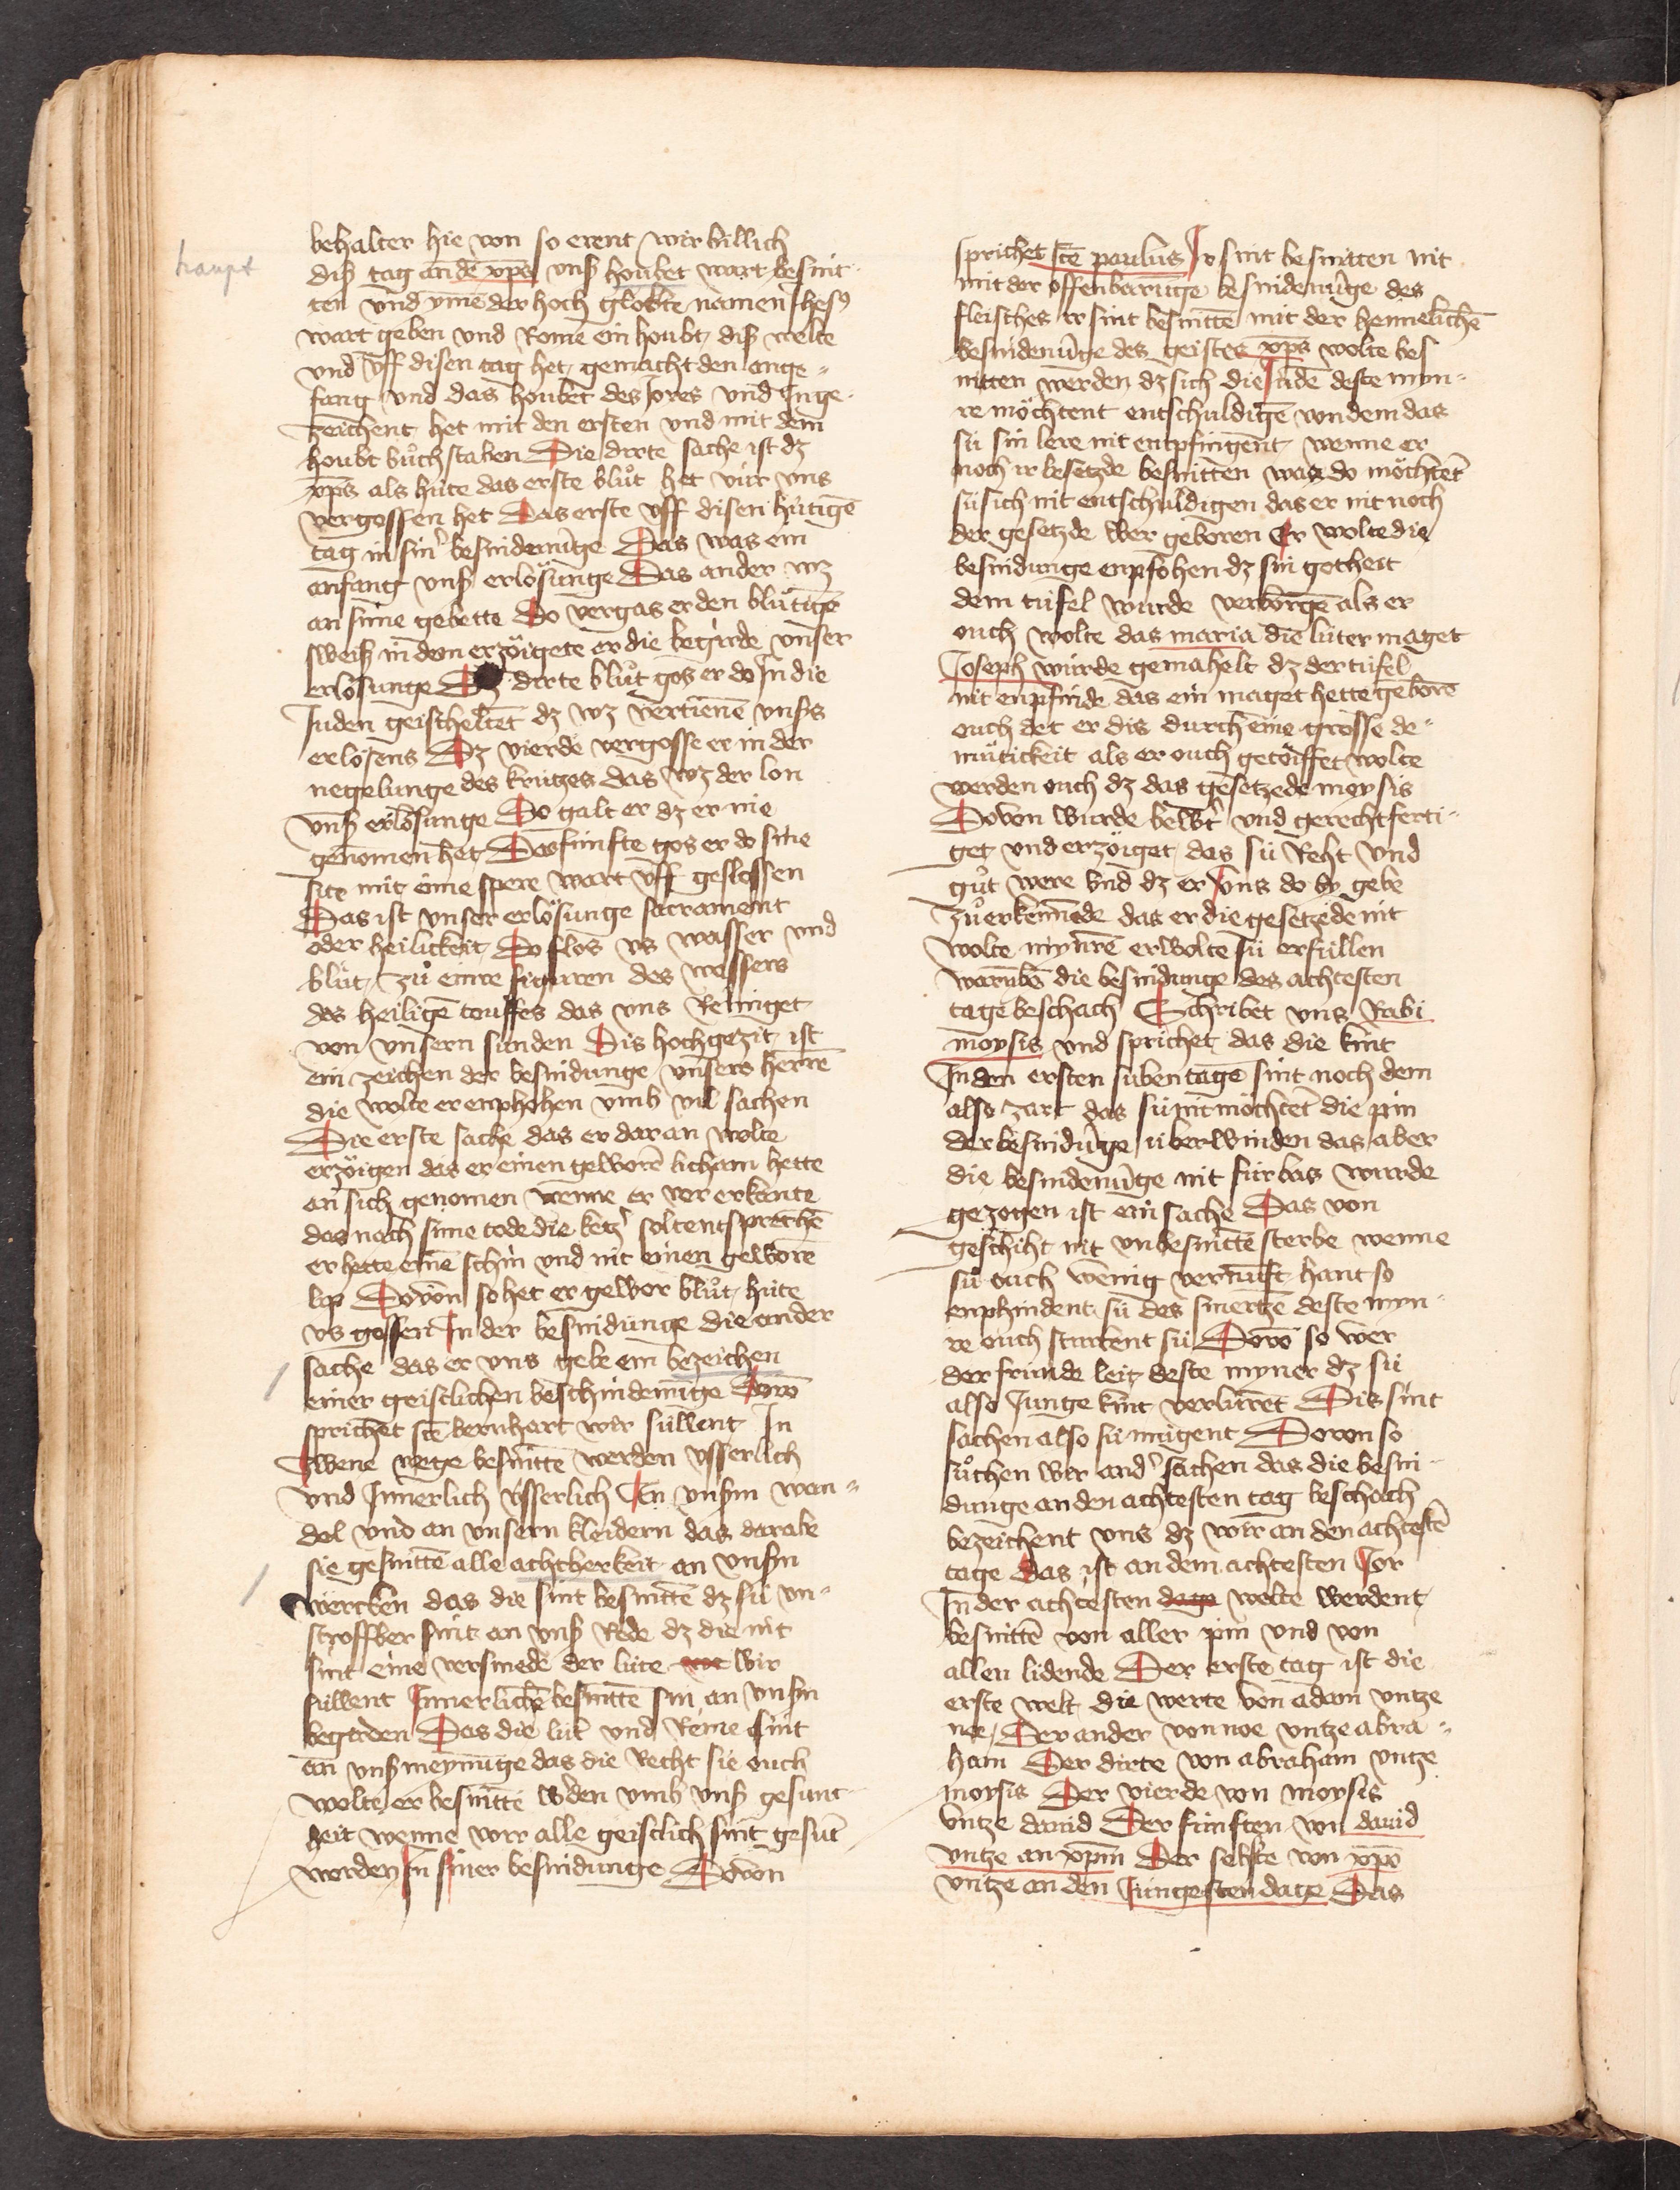 haupt
behalter hie von so erent wir billich
diß tag an dē xp̄s vnß houbet wart besnit-
ten vnd yme der hoch globte namen Jhesꝰ
wart geben vnd Rome ein houbt diß welte
vnd vff disen tag het gemacht den ane-
fang vnd das houbet des Jores vnd Inge-
zeichent het mit den ersten vnd mit dem
houbt bůchstaben Die dirte sache ist dz
xp̄s als hüte das erste blůt het vür vns
vergossen het Das erste vff disen hütigē
tag in sinˀ besnidenūge Das was ein
anfang vnß erlösunge Das ander wz
an sime gebette Do vergas er den blůtigē
sweiß in dem erzöigete er die begirde vnser
erlosunge Dz dirte blůt gos er do In die
Juden geischeltēt dz wz vertienē vnsˢ
erlosens Dz vierde vergosse er in der
negelunge des krützes das wz der lon
vnß erlösunge Do galt er dz er nie
genomen het Das fünfte gos er do sine
site mit eime spere wart vff geslossen
Das ist vnser erlösunge sacrament
oder heilickeit Do flos vs wasser vnd
blůt zů einre figuren des wassers
des heiligē touffes das vns Reiniget
von vnsern sunden Dis hochgezit ist
ein zeichen der besnidunge vnsers herrē
die wolte er enphohen vmb vil sachen
Die erste sache das er dar an wolte
erzöigen das er einen geworē licham hette
an sich genomen wenne er vor erkante
das noch sime tode die ketzˀ soltent sprechē
er hette einē schin vnd nit einen geworē
lip Dovon so het er gewor blůt hüte
vs gossen In der besnidunge die ander
sache das er vns gebe ein bezeichen
einer geistlichen beschindenūge Dovō
sprichet sc̄t bernhart wir süllent In
zwene wege besnittē werden vsserlich
vnd Innerlich vsserlich An vnsm̄ wan-
del vnd an vnsern kleidern das darabe
sie gesnittē alle achtberkeit an vnsm̄
wercken das die sint besnittē dz sü vn-
stroffber sint an vnß Rede dz die nit
sint eine versmede der lüte wir
süllent Innerlichē besnittē sin an vnsm̄
begirden Das die luter vnd Reine sint
an vnß meynūge das die Recht sie ouch
wolte er besnittē wˀden vmb vnß gesunt-
heit wenne wir alle geistlich sint gesūt
worden In siner besnidunge Dovon
sprichet sc̄te paulus Ir sint besnitten nit
mit der offenbarunge besnidenūge des
fleisches ir sint besnittē mit der heimelichē
besnidenūge des geistes xp̄s wolte bes
nitten werden dz sich die Judē deste myn-
re möchtent entschuldigē von dem das
sü sin lere nit enpfingent wenne er
noch ir gesetzde besnitten was do möchtēt
sü sich nit entschuldigen das er nit noch
der gesetzde wer geboren Er wolte die
besnidunge enpfohen dz sin gotheit
dem tüfel wurde verborgē als er
ouch wolte das maria die luter maget
Joseph wurde gemahelt dz der tüfel
nit enpfinde das ein maget hette geborē
ouch det er dis durch eine grosse de-
mütickeit als er ouch getöiffet wolte
werden ouch dz das gesetzede moysis
Dovon wurde bewˀt vnd gerechtferti-
get vnd erzöiget das sü Reht vnd
gůt were vnd dz er vns do by gebe
zů erkennede das er die gesetzede nit
wolte mynrē er wolte sü erfüllen
warūbe die besnidunge des achtesten
tage beschach Schribet vns Rabi
moysis vnd sprichet das die kint
In den ersten süben tagē sint noch dem
also zart das sü nit möchtēt die pin
der besnidūge überwinden das aber
die besnidenūge nit fürbas wurde
gezogen ist ein sache Das von
geschiht nit vnbesnittē sterbe wenne
sü ouch wenig vernunft hant so
enphindent sü des smertzē deste myn-
re ouch sturbent sü Dovō so wer
der fründe leit deste myner dz sü
also Junge kint verlürēt Dis sint
sachen also sü mügent Dovon so
sůchen wir andˀ sachen das die besni-
dunge an den achtesten tag beschach
bezeichent vns dz wir an den achtestē
tage das ist an dem achtesten Jor
In der achtesten dage welte werdent
besnittē von aller pin vnd von
allen lidende Der erste tag ist die
erste welt die werte von adam vntze
noe Der ander von noe vntze abra-
ham Der dirte von abraham vntze
moysis Der vierde von moysis
vntze dauid Der fünften von dauid
vntze an xp̄m Der sehste von xp̄o
vntze an den Jüngesten dage Das